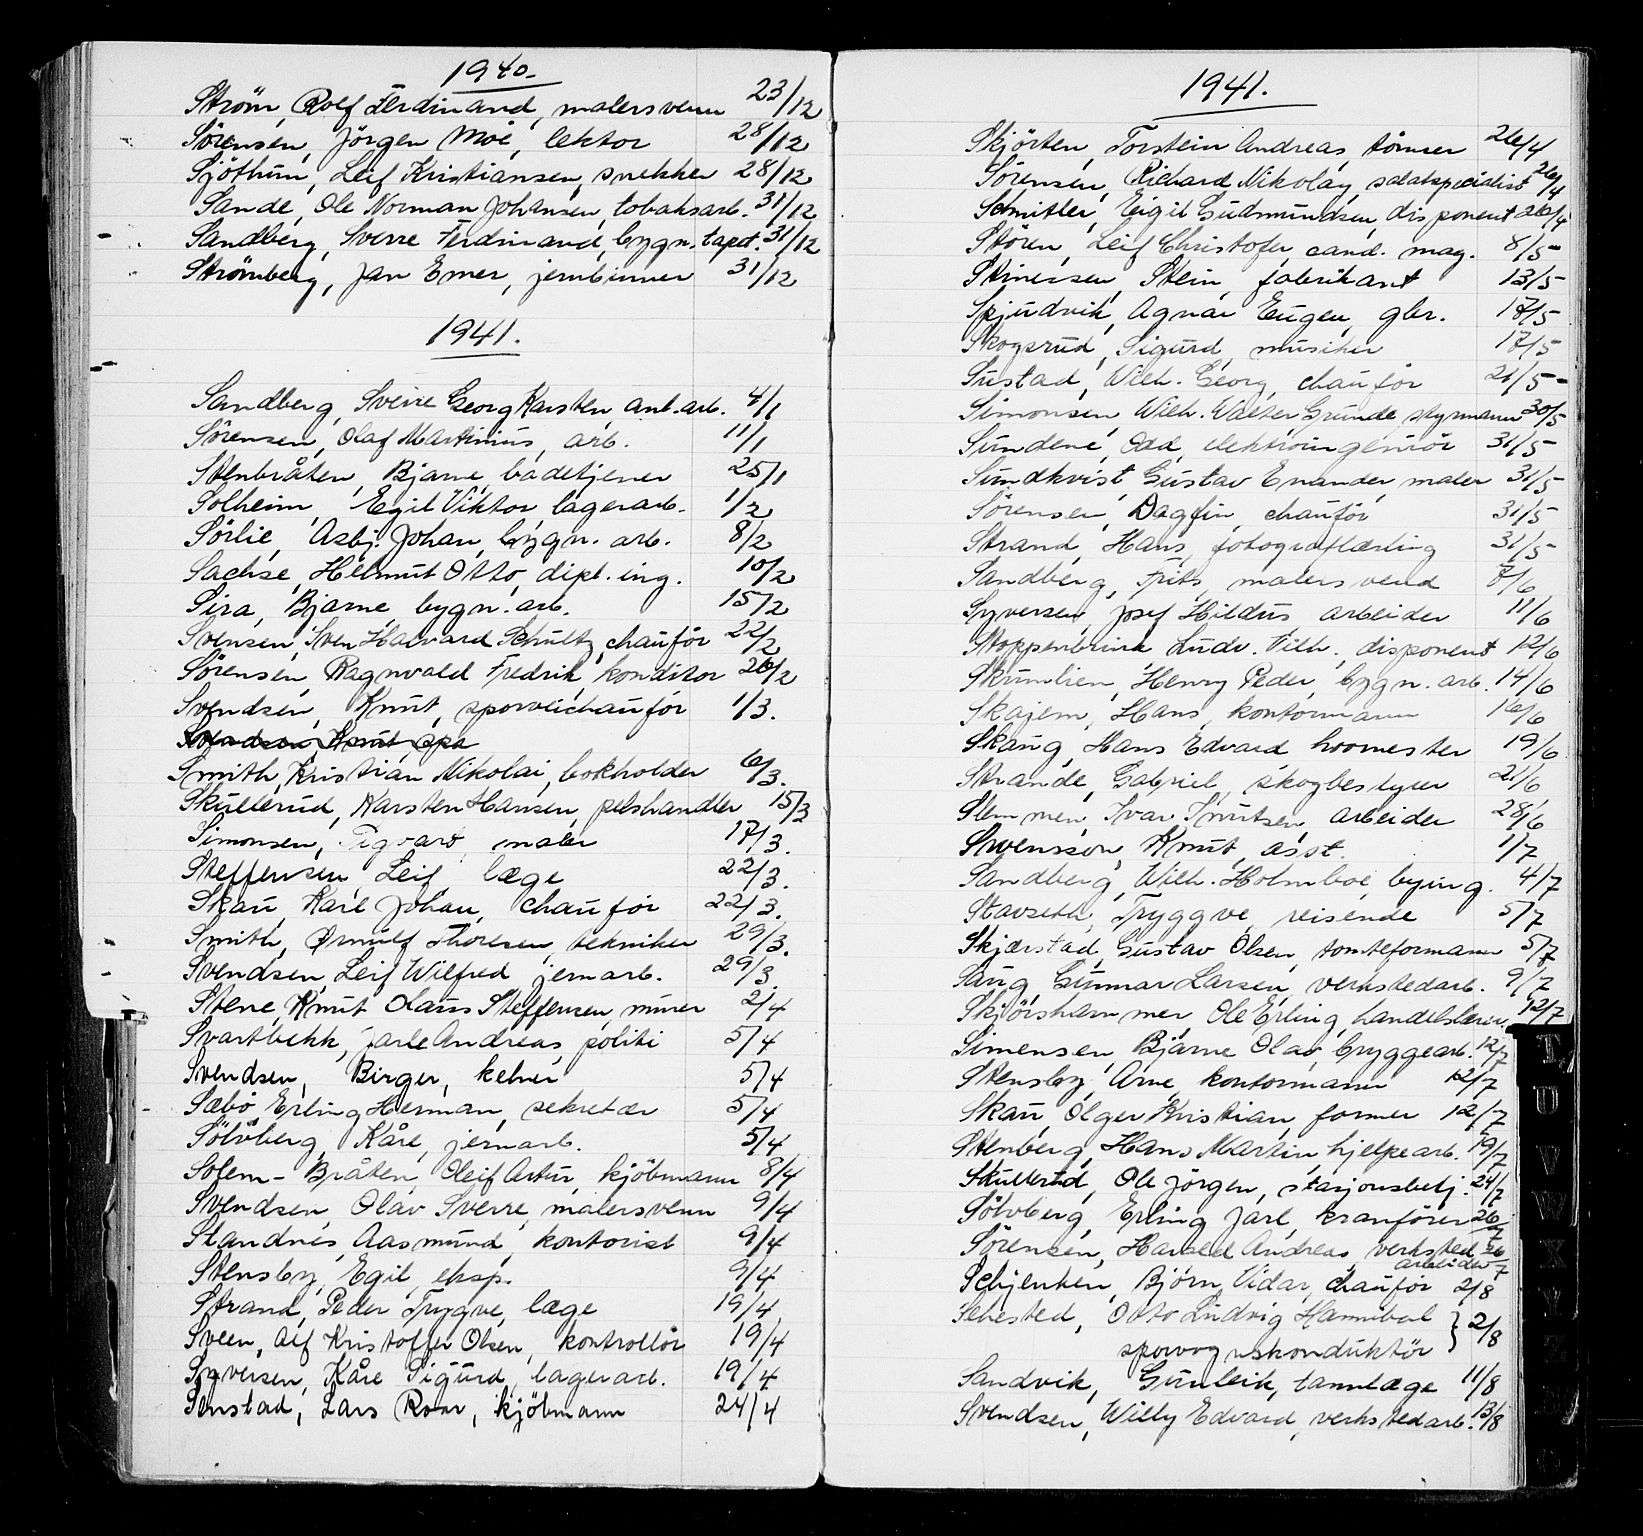 1940.
Ström, Rolf Ferdinand, malersvenn 23/12
Sörensen, Jörgen Moe, lektor 28/12
Sjöthun, Leif Kristiansen, snekker 28/12
Sande, Ole Norman Johansen, tobaksarb. 31/12
Sandberg, Sverre Ferdinand, bygn. tapet. 31/12
Strömberg, Jan Emer, jernbinner 31/12
1941.
Sandberg, Sverre Georg Karsten, anl.arb. 4/1
Sörensen, Olaf Martinius, arb. 11/1
Stenbråten, Bjarne, badetjener 25/1
Solheim, Egil Viktor lagerarb. 1/2
Sörlie, Asbj. Johan, bygn. arb. 8/2
Sachse, Helmut Otto, dipl. ing. 10/2
Sira, Bjarne bygn. arb. 15/2
Svensen, Sven Halvard Schultz, chauför 22/2
Sörensen, Ragnvald Fredrik, konditor 26/2
Svendsen, Knut, sporveischauför 1/3.
Svendsen, Knut, spo
Smith, Kristian Nikolai, bokholder 6/3.
Skullerud, Karsten Hansen, pelshandler 15/3
Simonsen, Sigvard, maler 17/3.
Steffensen Leif læge 22/3.
Skau, Karl Johan, chauför 22/3.
Smith, Ørnulf Thoresen, tekniker 29/3.
Svendsen, Leif Wilfred jernarb. 29/3.
Stene, Knut Olaus Steffensen, murer 2/4
Svartbekk, Jarle Andreas, politi 5/4
Svendsen, Birger, kelner 5/4
Sæbö Erling Herman, sekretær 5/4
Sölvberg, Kåre, jernarb. 5/4
Solem-Bråten, Oleif Artur, kjöbmann 8/4
Svendsen, Olav Sverre, malersvenn 9/4
Standnes, Aasmund, kontorist 9/4
Stensby, Egil, eksp. 9/4
Strand, Peder Trygve, læge 19/4
Sveen, Alf Kristoffer Olsen, kontrollör 19/4
Syversen, Kåre Sigurd, lagerarb. 19/4
Senstad, Lars Roar, kjöbmann 24/4
1941.
Skjörten, Torstein Andreas, tömrer 26/4
Sörensen, Richard Nikolay, salatspecialist 26/4
Schmitler, Eigil Gudmundsen, disponent 26/4
Stören, Leif Christofer, cand. mag. 8/5
Steinersen, Stein, fabrikant 13/5
Spjudvik, Agnar Eugen, gbr. 17/5
Skogsrud, Sigurd, musiker 17/5
Sustad, Wilh. Georg, chauför 21/5
Simonsen, Wilh. Walter Grunde, styrmann 30/5
Sundene, Odd, elektroingeniör 31/5
Sundkvist, Gustav Enander, maler 31/5
Sörensen, Dagfin, chauför 31/5
Strand, Hans, fotograflærling 31/5
Sandberg, Frits, malersvend 7/6
Syversen, Josef Hildus arbeider 11/6
Stoppenbrink Ludv. Vilh., disponent 12/6
Skrumlien, Henry Peder, bygn. arb. 14/6
Skajem, Hans, kontormann 16/6
Skaug, Hans Edvard hovmester 19/6
Strande, Gabriel, skogbestyrer 21/6
Slemmen, Ivar Knutsen, arbeider 28/6
Swensson, Knut, asst. 1/7
Sandberg, Wilh. Holmboe, bying. 4/7
Stavseth, Tryggve, reisende 5/7
Skjærstad, Gustav Olsen, tomteformann 5/7
Saug Gunnar Larsen, verkstedarb. 9/7
Skjörshammer Ole Erling, handelslærer 12/7
Simensen, Bjarne Olav, bryggearb. 12/7
Stensby, Arne, kontormann 12/7
Skau, Olger Kristian, former 12/7
Stenberg, Hans Martin, hjelpearb. 19/7
Skullerud, Ole Jörgen, stasjonsbetj. 24/7
Sölvberg, Erling Jarl, kranförer 26/7
Sörensen, Harald Andreas, verksted 26/7
arbeider
Schjenken, Björn Vidar, chauför 2/8
Sehested, Otto Ludvig Hannibal } 2/8
sporvognskonduktör
Sandvik, Gunleik, tannlæge 11/8
Svendsen, Willy Edvard, verkstedarb. 13/8
T.
U
V
W
X
Y